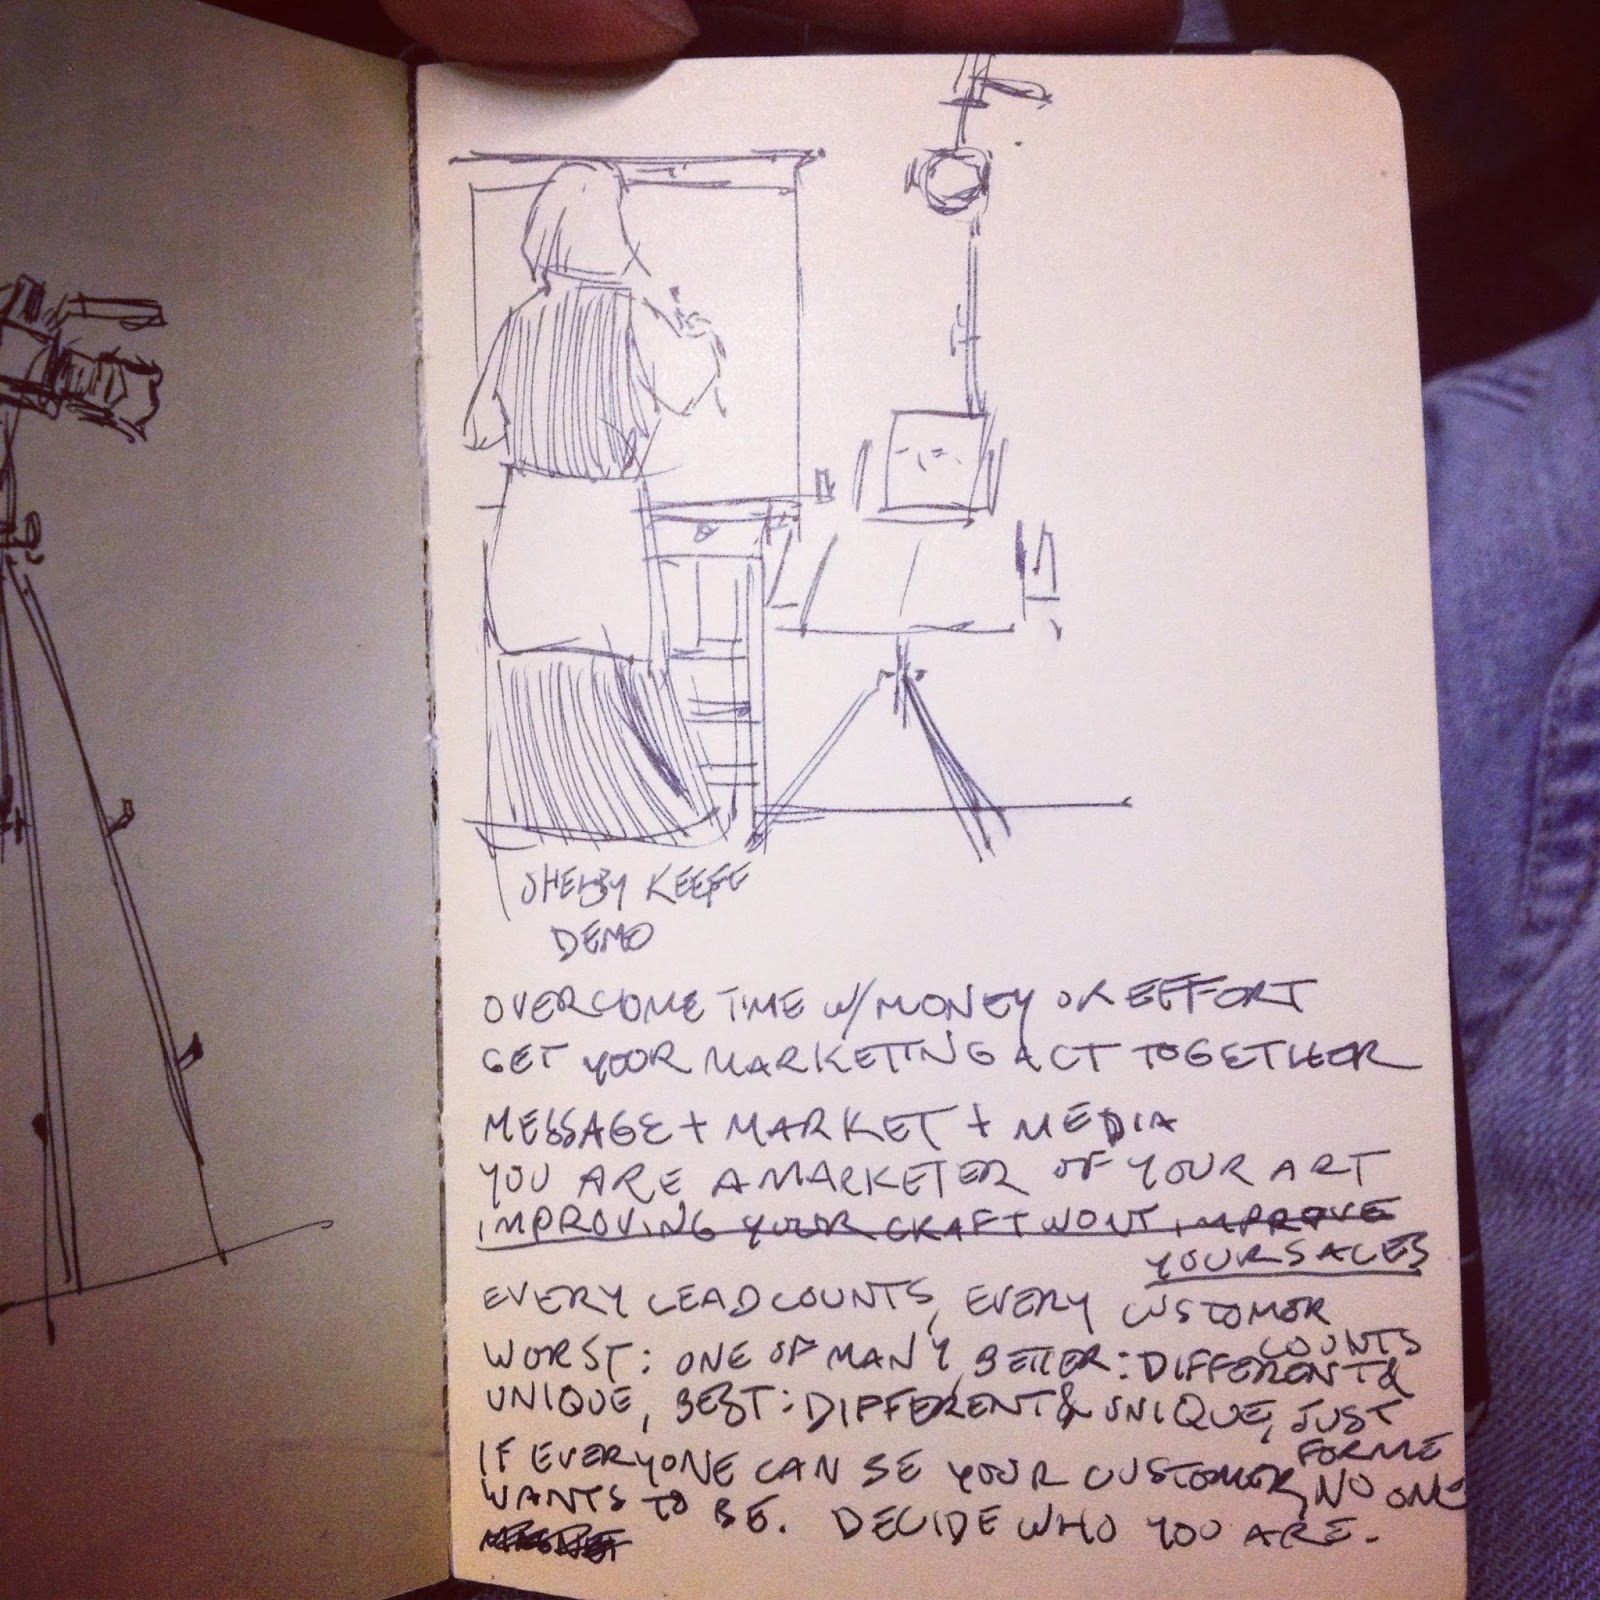 SHELBY KEEFE
DEMO
OVERCOME TIME W/ MONEY OR EFFORT
GET YOUR MARKETING ACT TOGETHER
MESSAGE + MARKET + MEDIA
YOU ARE A MARKETER OF YOUR ART
IMPROVING YOUR CRAFT WONT IMPROVE
YOUR SALES
EVERY LEAD COUNTS, EVERY CUSTOMER
COUNTS
WORST: ONE OF MANY, BETTER: DIFFERENT &
UNIQUE, BEST: DIFFERENT & UNIQUE, JUST
FOR ME
IF EVERYONE CAN BE YOUR CUSTOMER, NO ONE
WANTS TO BE. DECIDE WHO YOU ARE.